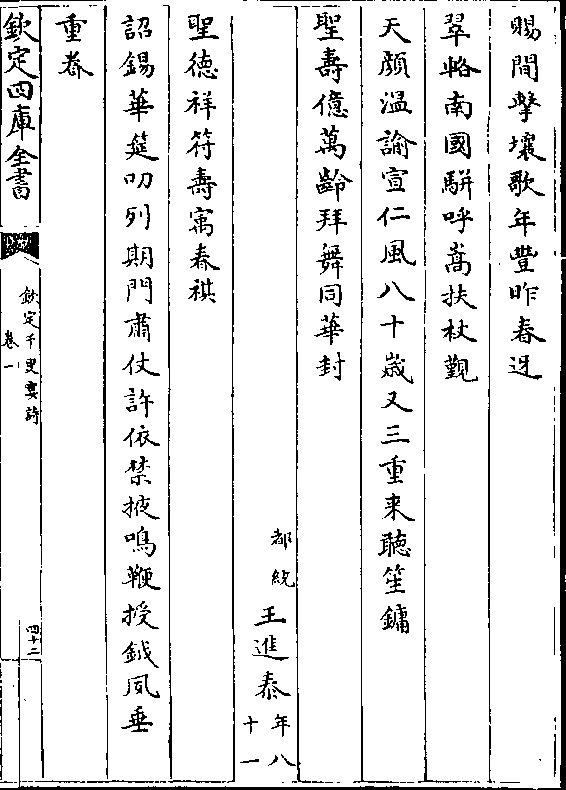 賜間擊壤歌年豐昨春迓
翠輅南國駢呼嵩扶杖覲
天顔溫諭宣仁風八十歳又三重来聽笙鏞
聖壽億萬齡拜舞同華封
都統王進泰年八十一
聖徳祥符壽寓春祺
詔錫華筵叨列期門肅仗許依禁掖鳴鞭授鉞夙垂
重眷
欽定四庫全書
欽定千叟宴詩
卷一
四十二